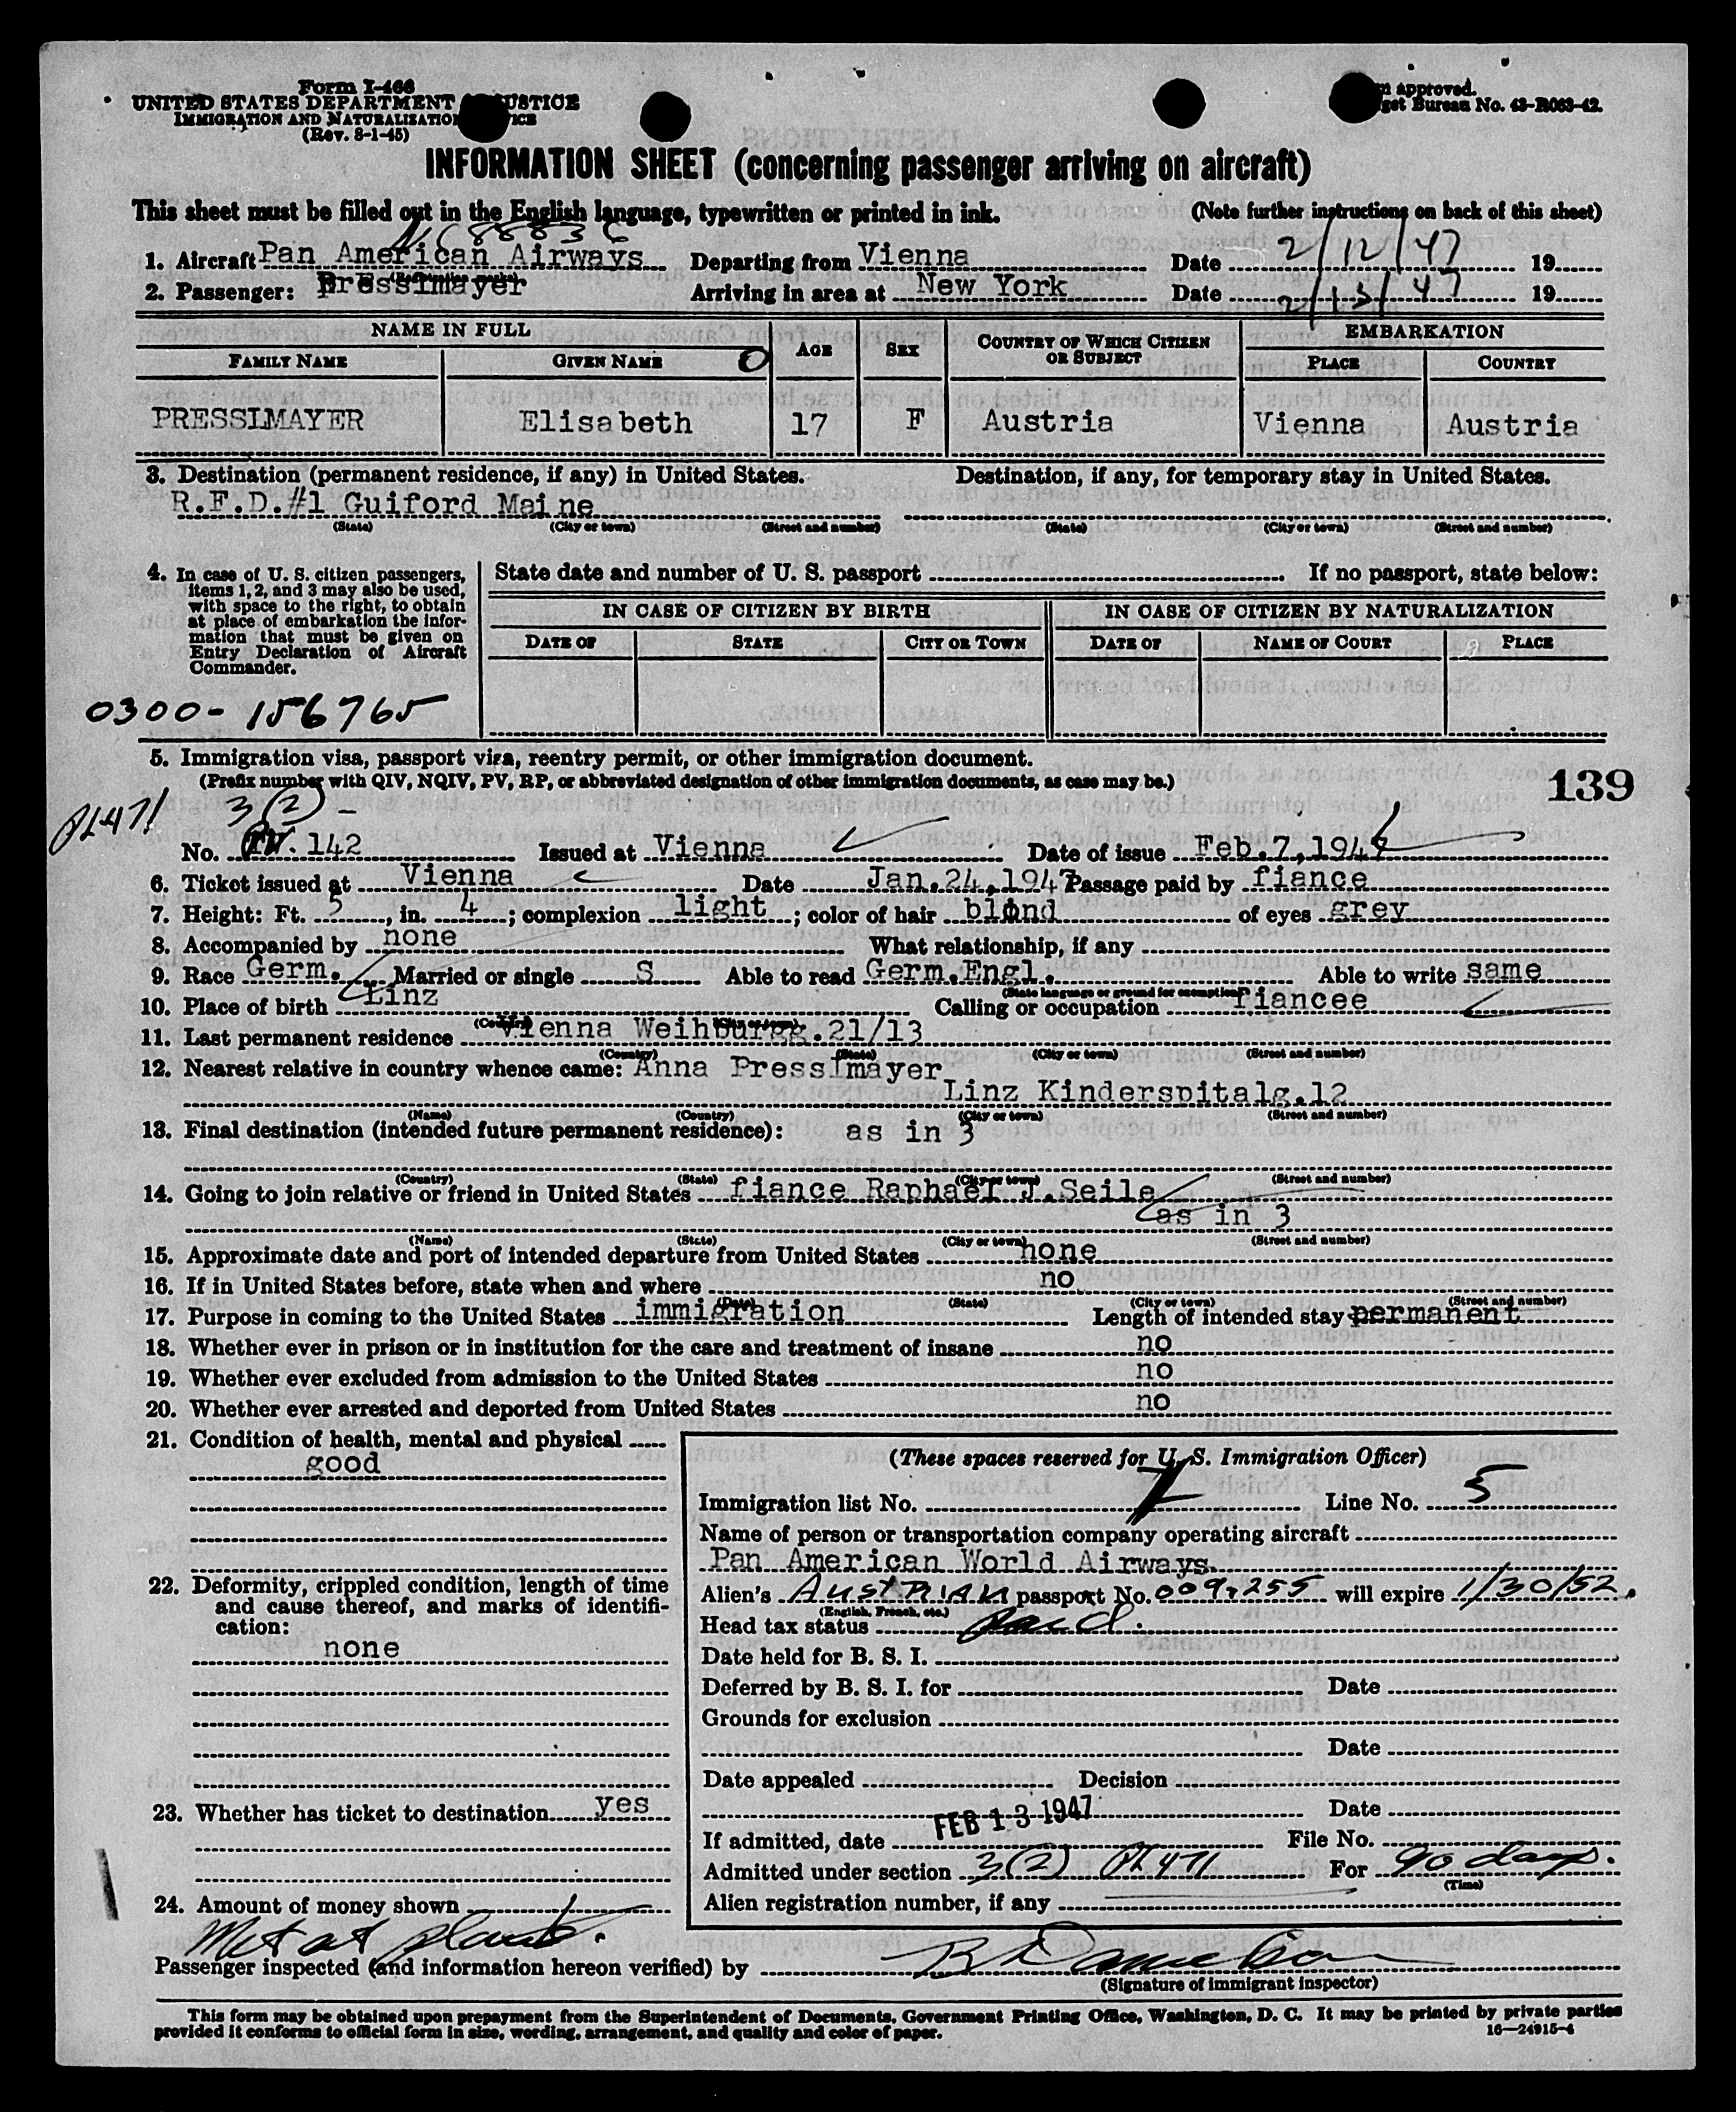 Form I-466
UNITED STATES DEPARTMENT JUSTICE
IMMIGRATION AND NATURALIZATION
(Rev. 8-1-45)
approved.
get Bureau No. 43-R063-42.
INFORMATION SHEET (concerning passenger arriving on aircraft)
This sheet must be filled out in the English language, typewritten or printed in ink. (Note further instructions on back of this sheet)
N 88836
1. Aircraft Pan American Airways Departing from Vienna Date 2/12/47 19
(Registration marks)
2. Passenger: Presslmayer Arriving in area at New York Date 2/13/47 19
NAME IN FULL AGE SEX COUNTRY OF WHICH CITIZEN OR SUBJECT EMBARKATION
FAMILY NAME GIVEN NAME PLACE COUNTRY
PRESSLMAYER Elisabeth 17 F Austria Vienna Austria
3. Destination (permanent residence, if any) in United States. Destination, if any, for temporary stay in United States.
R.F.D.#1 Guiford Maine
(State) (City or town) (Street and number) (State) (City or town) (Street and number)
4. In case of U. S. citizen passengers, items 1, 2, and 3 may also be used, with space to the right, to obtain at place of embarkation the information that must be given on Entry Declaration of Aircraft Commander.
State date and number of U. S. passport If no passport, state below:
IN CASE OF CITIZEN BY BIRTH IN CASE OF CITIZEN BY NATURALIZATION
DATE OF STATE CITY OR TOWN DATE OF NAME OF COURT PLACE
0300-156765
5. Immigration visa, passport visa, reentry permit, or other immigration document.
(Prefix number with QIV, NQIV, PV, RP, or abbreviated designation of other immigration documents, as case may be.)
139
PL471 3(2) -
No. PV. 142 Issued at Vienna Date of issue Feb.7,194
6. Ticket issued at Vienna Date Jan.24,1947 Passage paid by fiance
7. Height: Ft. 5, in. 4; complexion light; color of hair blond of eyes grey
8. Accompanied by none What relationship, if any
9. Race Germ. Married or single S Able to read Germ.Engl. Able to write same
(State language or ground for exemption)
10. Place of birth Linz Calling or occupation fiancee
(Country) (City or town)
11. Last permanent residence Vienna Weihburgg.21/13
(Country) (State) (City or town) (Street and number)
12. Nearest relative in country whence came: Anna Presslmayer
Linz Kinderspitalg.12
(Name) (Country) (City or town) (Street and number)
13. Final destination (intended future permanent residence): as in 3
(Country) (State) (City or town) (Street and number)
14. Going to join relative or friend in United States fiance Raphael J.Seile
as in 3
(Name) (State) (City or town) (Street and number)
15. Approximate date and port of intended departure from United States none
16. If in United States before, state when and where no
(Date) (State) (City or town) (Street and number)
17. Purpose in coming to the United States immigration Length of intended stay permanent
18. Whether ever in prison or in institution for the care and treatment of insane no
19. Whether ever excluded from admission to the United States no
20. Whether ever arrested and deported from United States no
21. Condition of health, mental and physical
good
22. Deformity, crippled condition, length of time and cause thereof, and marks of identification:
none
23. Whether has ticket to destination yes
24. Amount of money shown
Met at plane.
(These spaces reserved for U. S. Immigration Officer)
Immigration list No. Line No. 5
Name of person or transportation company operating aircraft
Pan American World Airways.
Alien's Austrian passport No. 009,255 will expire 1/30/52.
(English, French, etc.)
Head tax status paid.
Date held for B. S. I.
Deferred by B. S. I. for Date
Grounds for exclusion
Date
Date appealed Decision
Date
If admitted, date FEB 13 1947 File No.
Admitted under section 3(2) PL471 For 90 days.
(Time)
Alien registration number, if any
Passenger inspected (and information hereon verified) by
(Signature of immigrant inspector)
This form may be obtained upon prepayment from the Superintendent of Documents, Government Printing Office, Washington, D. C. It may be printed by private parties
provided it conforms to official form in size, wording, arrangement, and quality and color of paper. 16—24915-4